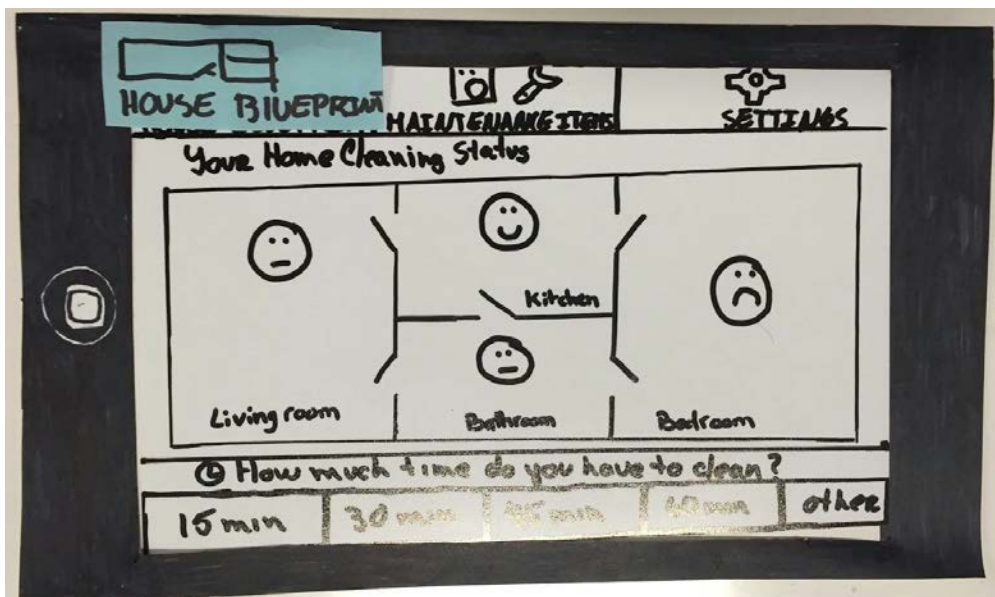 HOUSE BLUEPRINT
MAINTENANCE ITEMS
SETTINGS
Your Home Cleaning Status
Kitchen
Living room
Bathroom
Bedroom
How much time do you have to clean?
15 min
30 min
45 min
60 min
other